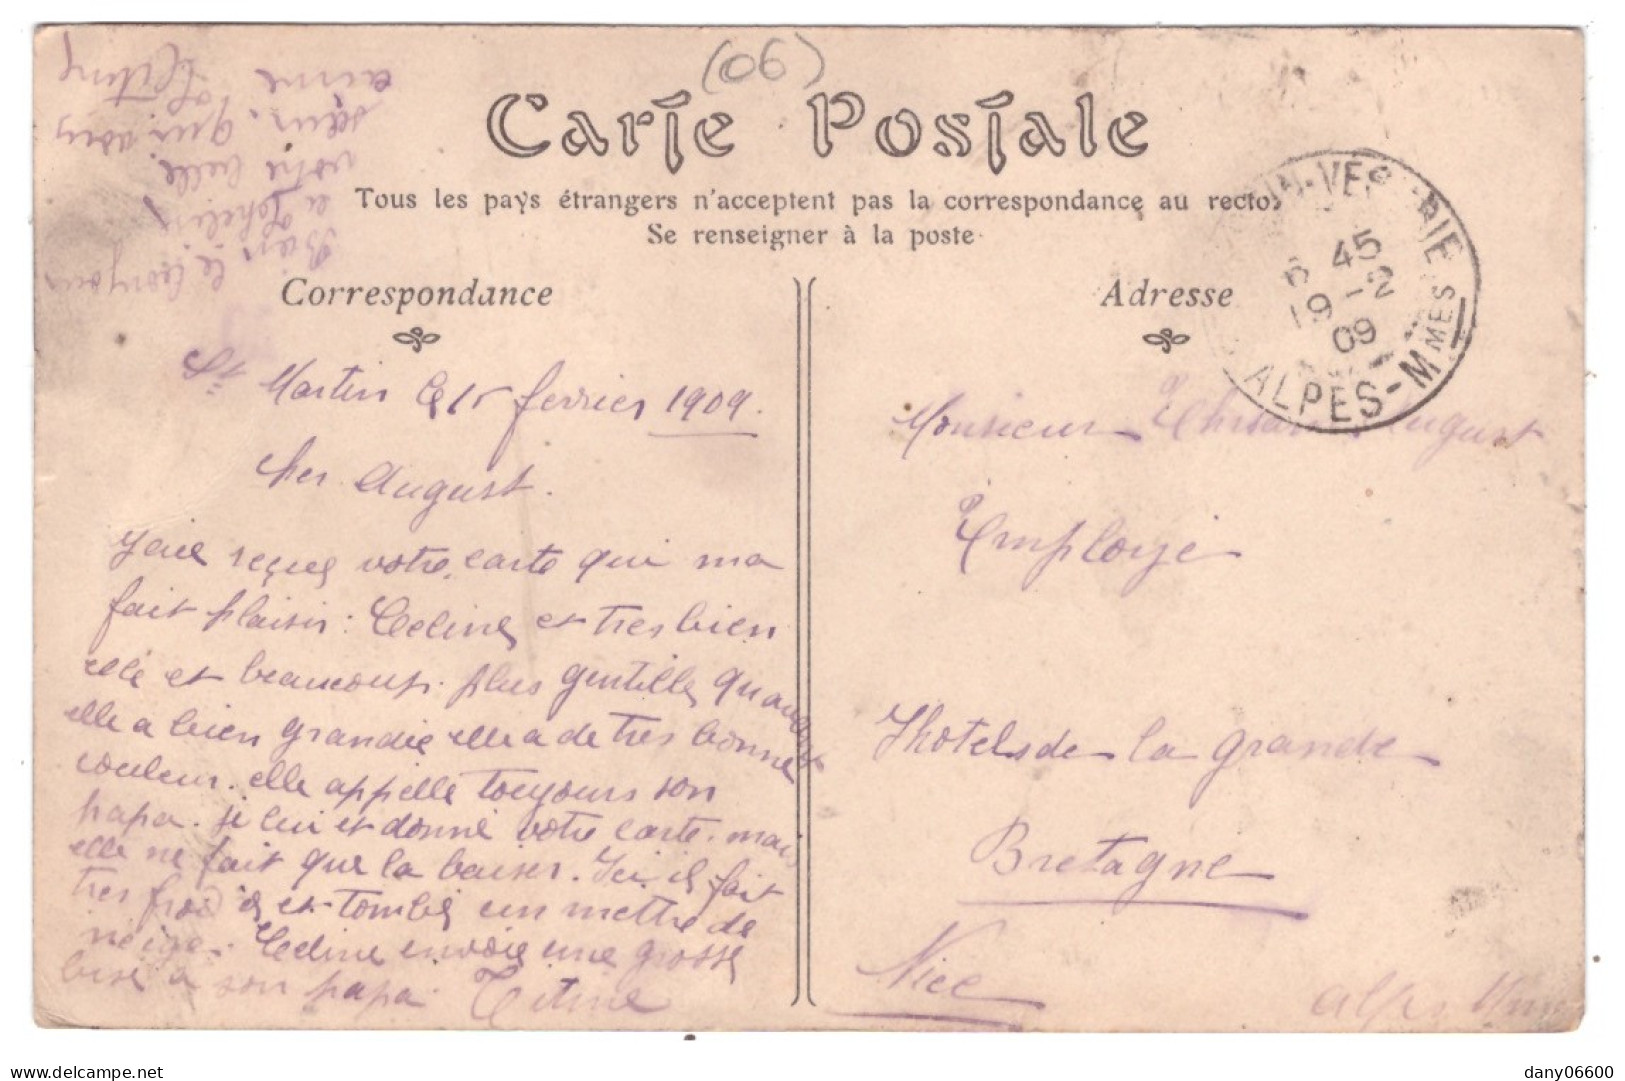 (06)
Carte Postale
Tous les pays étrangers n'acceptent pas la correspondance au recto
Se renseigner à la poste
Correspondance
St Martin le 15 fevrier 1909.
cher August.
j'aie reçue votre carte qui ma
fait plaisir: Celine et tres bien
elle et beaucoup plus gentille quand
elle a bien grandie elle a de tres bonne
couleur. elle appelle toujours son
papa. je lui et donné votre carte. mais
elle ne fait que la baiser. Ici il fait
tres froid et tombé un mettre de
neige. Celine envoie une grosse
bise à son papa Titine
Bien le bonjour
votre belle
sœur. qui vous
aime
Titine
Adresse
VES BIE
6 45
19 -2
09
ALPES-MMES
Monsieur August
Employé
Jhotels de la grande
Bretagne
Nice
alpes Mmes
delcampe.net
dany06600